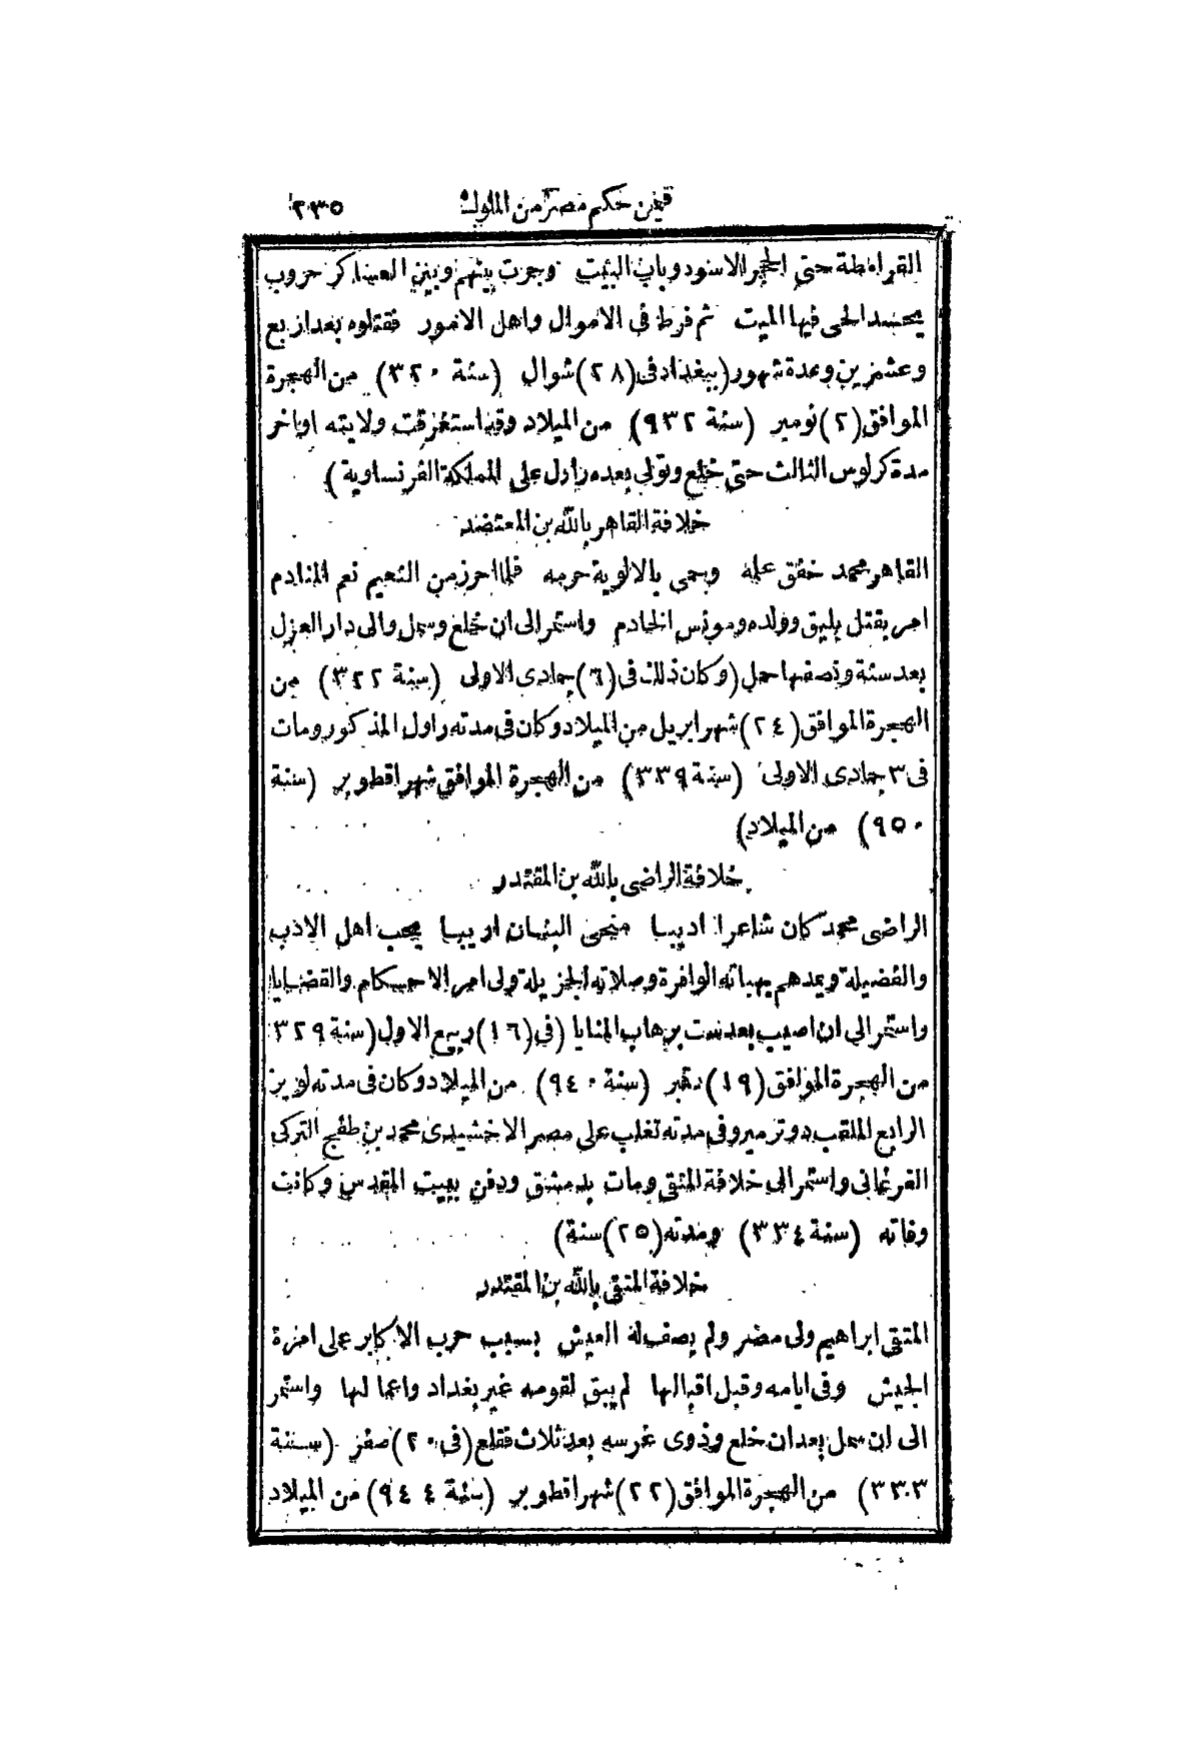 فيمن حكم مصر من الملوك ٢٣٥
القرامطة حتى الحجر الاسود وباب البيت وجرت بينهم وبين العساكر حروب
يحسد الحى فيها الميت ثم فرط فى الاموال واهل الامور فقتلوه بعد اربع
وعشرين وعدة شهور (ببغداد فى (٢٨) شوال (سنة ٣٢٠) من الهجرة
الموافق (٢) نومبر (سنة ٩٣٢) من الميلاد وقد استغرقت ولايته اواخر
مدة كرلوس الثالث حتى خلع وتولى بعده راول على المملكة الفرنساوية)
خلافة القاهر بالله بن المعتضد
القاهر محمد خفق علمه وحمى بالالوية حرمه فلما احرز من النعيم نعم المنادم
امر بقتل بليق وولده ومونس الخادم واستمر الى ان خلع وسمل والى دار العزل
بعد سنة ونصفها حمل (وكان ذلك فى (٦) جمادى الاولى (سنة ٣٢٢) من
الهجرة الموافق (٢٤) شهر ابريل من الميلاد وكان فى مدته راول المذكور ومات
فى ٣ جمادى الاولى (سنة ٣٣٩) من الهجرة الموافق شهر اقطوبر (سنة
٩٥٠) من الميلاد)
خلافة الراضى بالله بن المقتدر
الراضى محمد كان شاعرا اديبا البنان اريبا يحب اهل الادب
والفضيلة ويمدهم بهباته الوافرة وصلاته الجزيلة ولى امر الاحكام والقضايا
واستمر الى ان اصيب بعد ست برهاب المنايا (فى (١٦) ربيع الاول (سنة ٣٢٩)
من الهجرة الموافق (١٩) دقمبر (سنة ٩٤٠) من الميلاد وكان فى مدته لويز
الرابع الملقب دوترمير وفى مدته تغلب على مصر الاخشيدى محمد بن طفج التركى
الفرغانى واستمر الى خلافة المتقى ومات بدمشق ودفن ببيت المقدس وكانت
وفاته (سنة ٣٣٤) ومدته (٢٥) سنة)
خلافة المتقى بالله بن المقتدر
المتقى ابراهيم ولى مضر ولم يصف له العيش بسبب حرب الاكابر على امرة
الجيش وفى ايامه وقبل اقبالها لم يبق لقومه غير بغداد واعمالها واستمر
الى ان سمل بعد ان خلع وذوى غرسه بعد ثلاث فقلع (فى ٢٠) صفر (سنة
٣٣٣) من الهجرة الموافق (٢٢) شهر اقطوبر (سنة ٩٤٤) من الميلاد